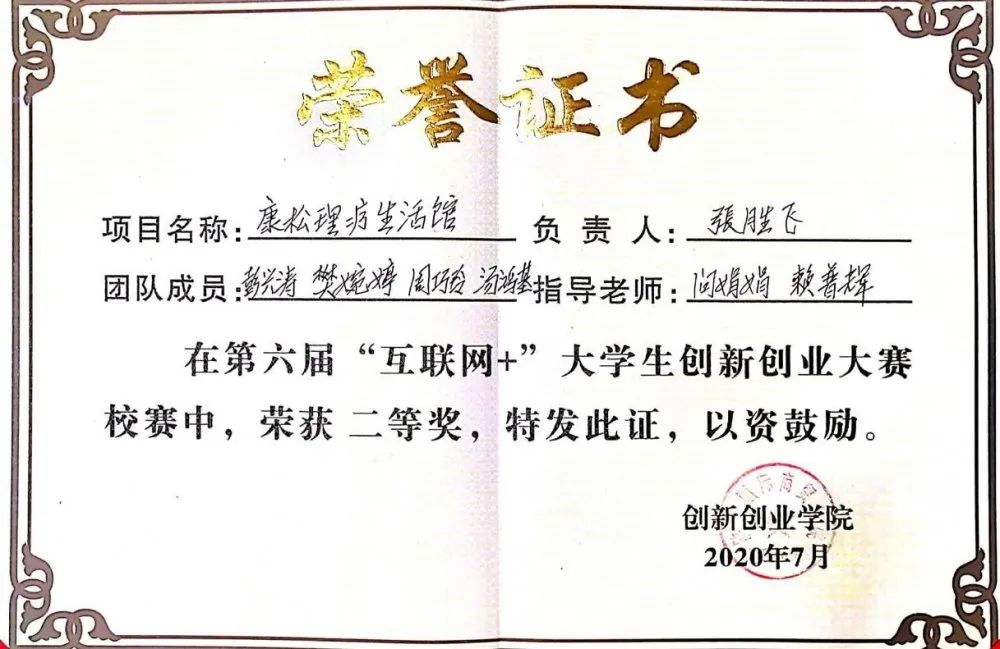 荣誉证书
项目名称：康松理疗生活馆 负责人：張胜飞
团队成员：彭兴涛 樊婉婷 周巧玲 汤鸿基 指导老师：问娟娟 赖普辉
在第六届“互联网+”大学生创新创业大赛
校赛中，荣获 二等奖，特发此证，以资鼓励。
创新创业学院
2020年7月